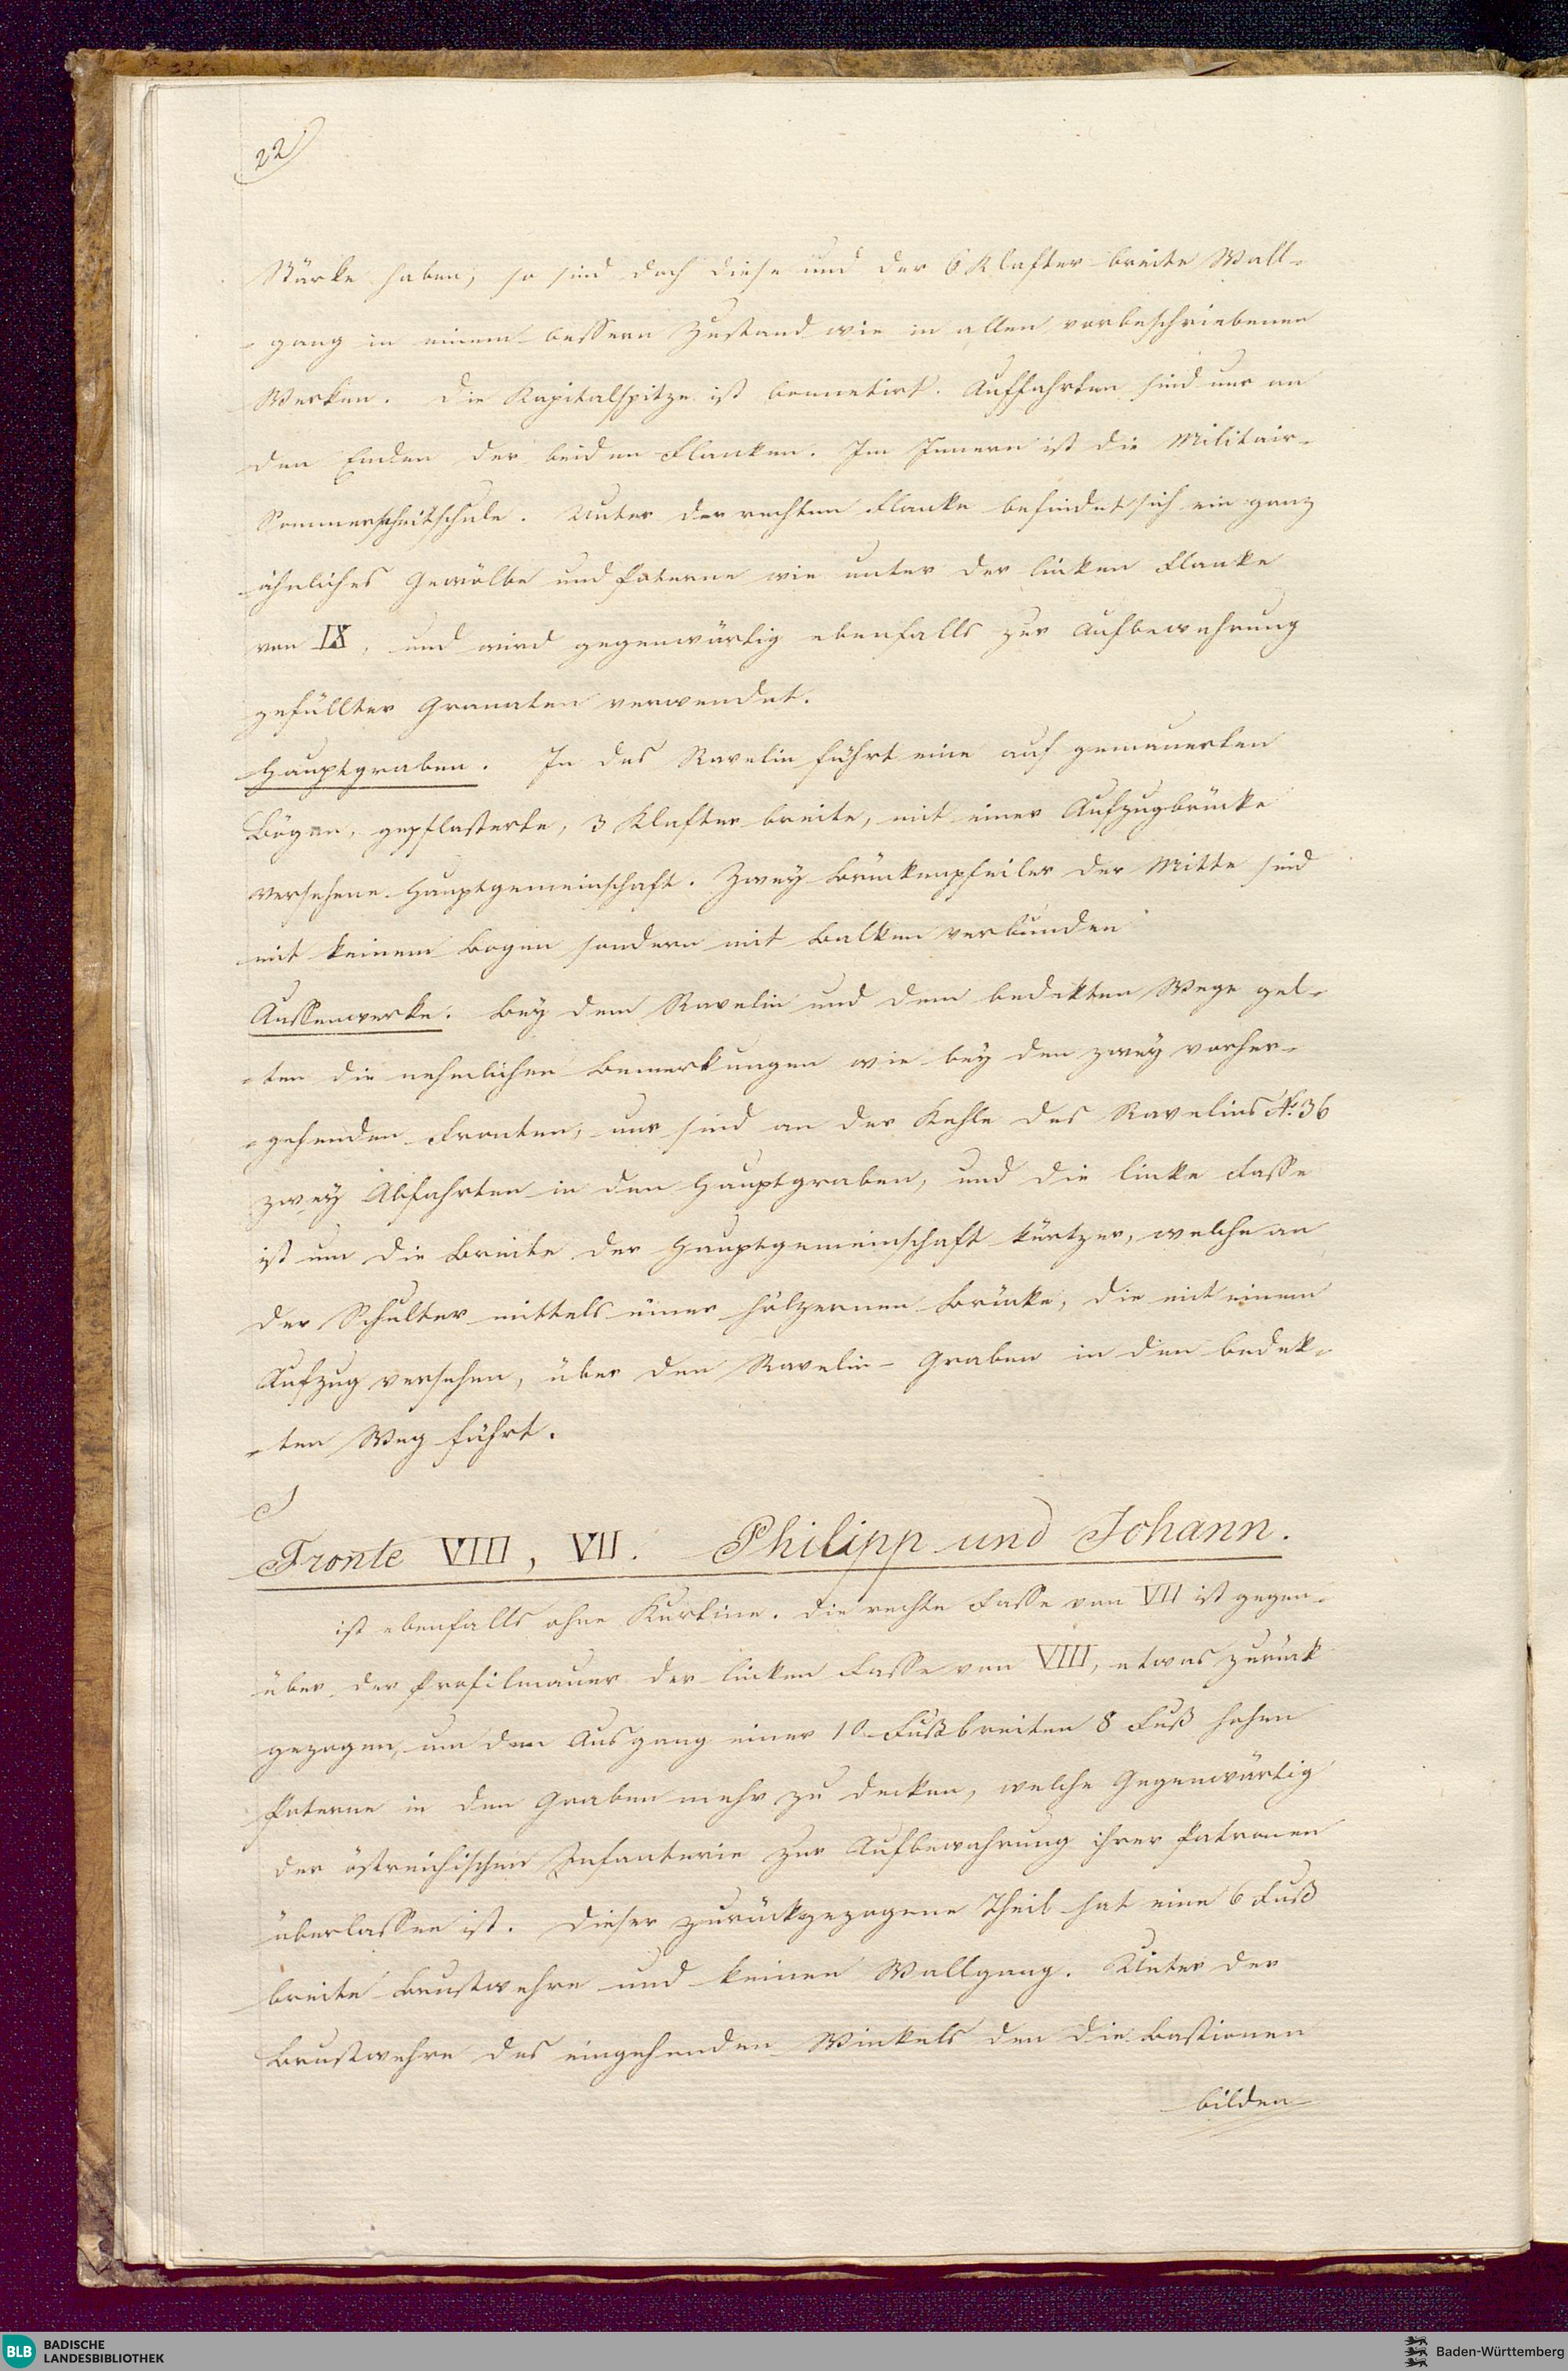 22
Stärke haben, so sind doch diese und der 6 Klafter breite Wall-
-gang in einem bessern Zustand wie in allen vorbeschriebenen
Werken. Die Kapitalspitze ist bonnetirt. Auffahrten sind nur an
den Enden der beiden Flanken. Im Innern ist die Militair-
Sommerreitschule. Unter der rechten Flanke befindet sich ein ganz
ähnliches Gewölbe und Poterne wie unter der linken Flanke
von IX, und wird gegenwärtig ebenfalls zur Aufbewahrung
gefüllter Granaten verwendet.
Hauptgraben. In das Ravelin führt eine auf gemauerten
Bögen, gepflasterte, 3 Klafter breite, mit einer Aufzugbrücke
versehene Hauptgemeinschaft. Zwey Brückenpfeiler der Mitte sind
mit keinem Bogen sondern mit Balken verbunden
Aussenwerke. Bey dem Ravelin und dem bedekten Wege gel-
-ten die nehmlichen Bemerkungen wie bey den zwey vorher-
-gehenden Fronten, nur sind an der Kehle des Ravelins No. 36
zwey Abfahrten in den Hauptgraben, und die linke Fasse
ist um die Breite der Hauptgemeinschaft kürtzer, welche an
der Schulter mittels einer hölzernen Brücke, die mit einem
Aufzug versehen, über den Ravelin-Graben in den bedek-
-ten Weg führt.
Fronte VIII, VII. Philipp und Johann.
ist ebenfalls ohne Kurtine. Die rechte Fasse von VII ist gegen-
über der Profilmauer der linken Fasse von VIII, etwas zurück
gezogen, um den Ausgang einer 10 Fuß breiten 8 Fuß hohen
Poterne in den Graben mehr zu decken, welche Gegenwärtig
der östreichischen Infanterie zur Aufbewahrung ihrer Patronen
überlassen ist. Dieser zurückgezogene Theil hat eine 6 Fuß
breite Brustwehre und keinen Wallgang. Unter der
Brustwehre des eingehenden Winkels den die Bastionen
bilden
BLB BADISCHE
LANDESBIBLIOTHEK
Baden-Württemberg